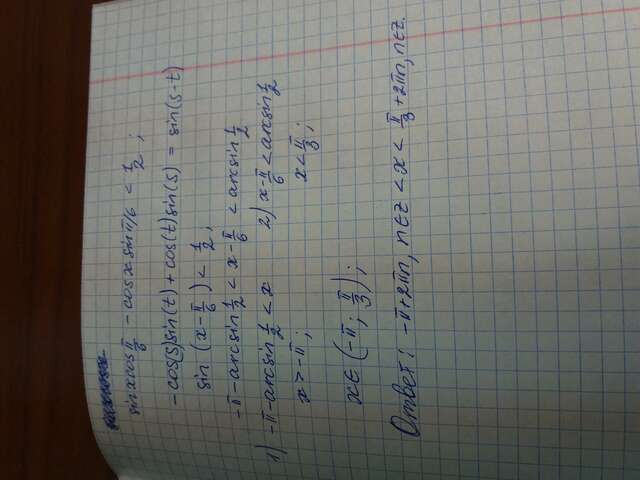 sinxcos π/6 - cosx sin π/6 < 1/2 ;
-cos(S)sin(t) + cos(t)sin(S) = sin(S-t)
sin (x - π/6) < 1/2 ;
-π - arcsin 1/2 < x - π/6 < arcsin 1/2
1) -π - arcsin 1/2 < x 2) x - π/6 < arcsin 1/2
x > -π ; x < π/3 ;
x ∈ (-π ; π/3) ;
Ответ: -π + 2πn, n∈z < x < π/3 + 2πn, n∈z.